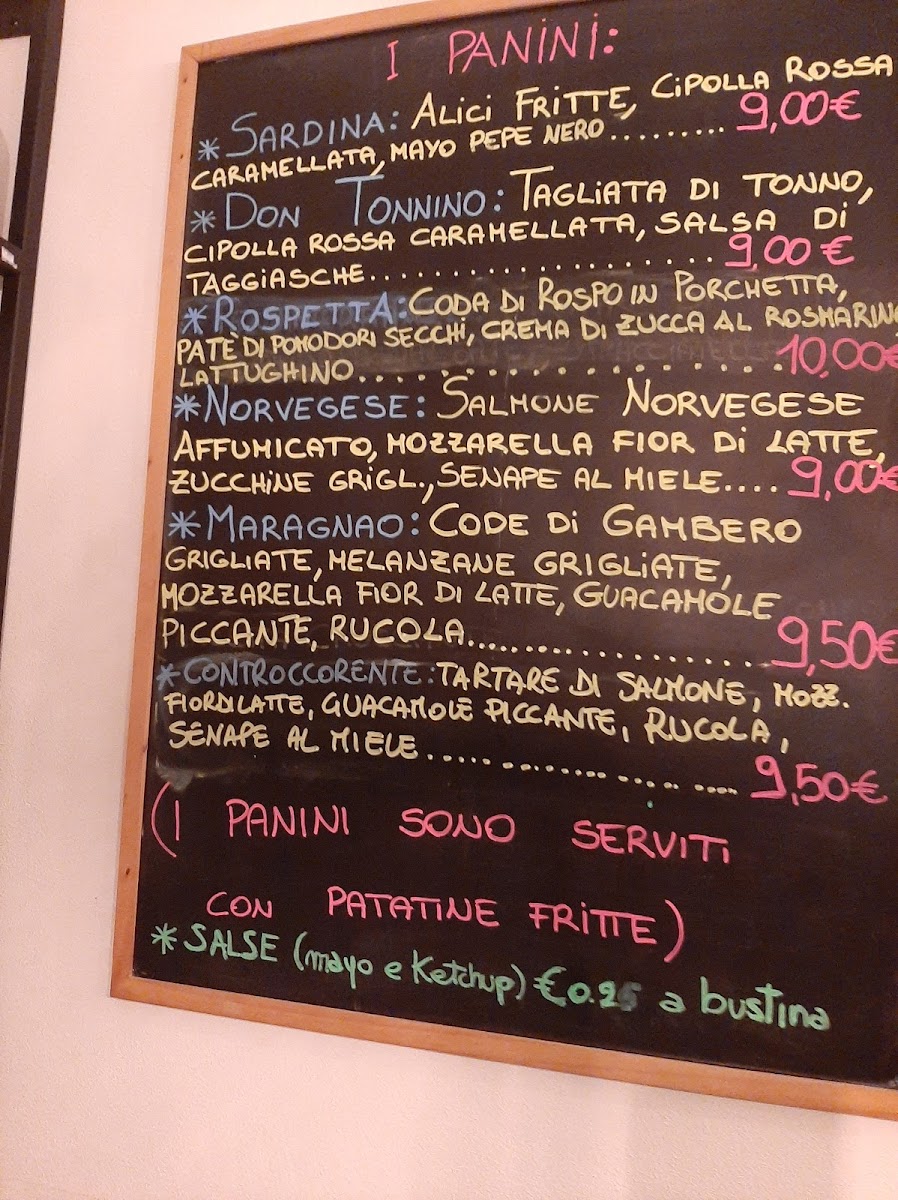 I PANINI:
* SARDINA: ALICI FRITTE, CIPOLLA ROSSA
CARAMELLATA, MAYO PEPE NERO......... 9,00€
* DON TONNINO: TAGLIATA DI TONNO,
CIPOLLA ROSSA CARAMELLATA, SALSA DI
TAGGIASCHE..................... 9,00€
* ROSPETTA: CODA DI ROSPO IN PORCHETTA,
PATE DI POMODORI SECCHI, CREMA DI ZUCCA AL ROSMARINO
LATTUGHINO.................. 10,00€
* NORVEGESE: SALMONE NORVEGESE
AFFUMICATO, MOZZARELLA FIOR DI LATTE,
ZUCCHINE GRIGL., SENAPE AL MIELE.... 9,00€
* MARAGNAO: CODE DI GAMBERO
GRIGLIATE, MELANZANE GRIGLIATE,
MOZZARELLA FIOR DI LATTE, GUACAMOLE
PICCANTE, RUCOLA.................... 9,50€
* CONTROCCORENTE: TARTARE DI SALMONE, MOZZ.
FIORDILATTE, GUACAMOLE PICCANTE, RUCOLA,
SENAPE AL MIELE .................... 9,50€
(I PANINI SONO SERVITI
CON PATATINE FRITTE)
* SALSE (mayo e Ketchup) €0.25 a bustina